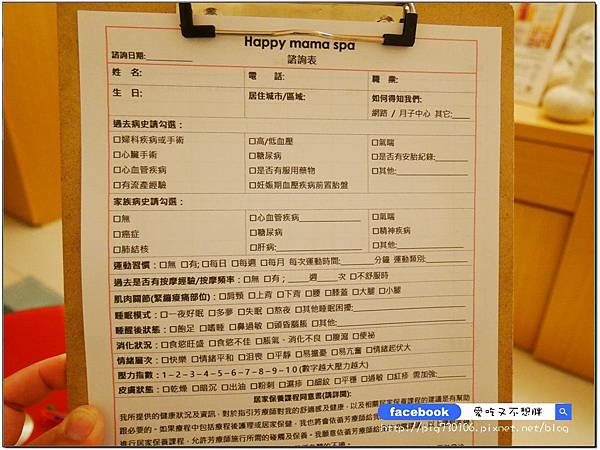 Happy mama spa
諮詢表
諮詢日期:__________
姓 名: 電 話: 職 業:
生 日: 居住城市/區域: 如何得知我們:
網路 / 月子中心 其它:____
過去病史請勾選：
□婦科疾病或手術 □高/低血壓 □氣喘
□心臟手術 □糖尿病 □是否有安胎紀錄:______
□心血管疾病 □是否有服用藥物 □其他:______
□有流產經驗 □妊娠期血壓疾病前置胎盤
家族病史請勾選：
□無 □心血管疾病__________ □氣喘
□癌症 □糖尿病 □精神疾病
□肺結核 □肝病:__________ □其他:______
運動習慣：□無 □有;□每日 □每週 □每月 每次運動時間:______分鐘 運動類別:______
過去是否有按摩經驗/按摩頻率：□無 □有；____週____次 □不舒服時
肌肉關節(緊繃痠痛部位)：□肩頸 □上背 □下背 □腰 □膝蓋 □大腿 □小腿
睡眠模式：□一夜好眠 □多夢 □失眠 □熬夜 □其他睡眠困擾:______
睡醒後狀態：□飽足 □嗜睡 □鼻過敏 □頭昏腦脹 □其他:______
消化狀況：□食慾旺盛 □食慾不佳 □脹氣、消化不良 □腹瀉 □便祕
情緒層次：□快樂 □情緒平和 □沮喪 □平靜 □易擔憂 □易亢奮 □情緒起伏大
壓力指數：1–2–3–4–5–6–7–8–9–10 (數字越大壓力越大)
皮膚狀態：□乾燥 □暗沉 □出油 □粉刺 □濕疹 □細紋 □平穩 □過敏 □紅疹 需加強:
居家保養課程同意書(請詳閱):
我所提供的健康狀況及資訊，對於指引芳療師對我的舒適感及健康，以及相關居家保養課程的建議是有幫助
跟必要的。如果療程中包括療程後護理或居家保健，我也將會依循芳療師給我
進行居家保養課程，允許芳療師施行所需的碰觸及保養。我願意依循芳療師給
facebook 愛吃又不想胖
http://big730106.pixnet.net/blog